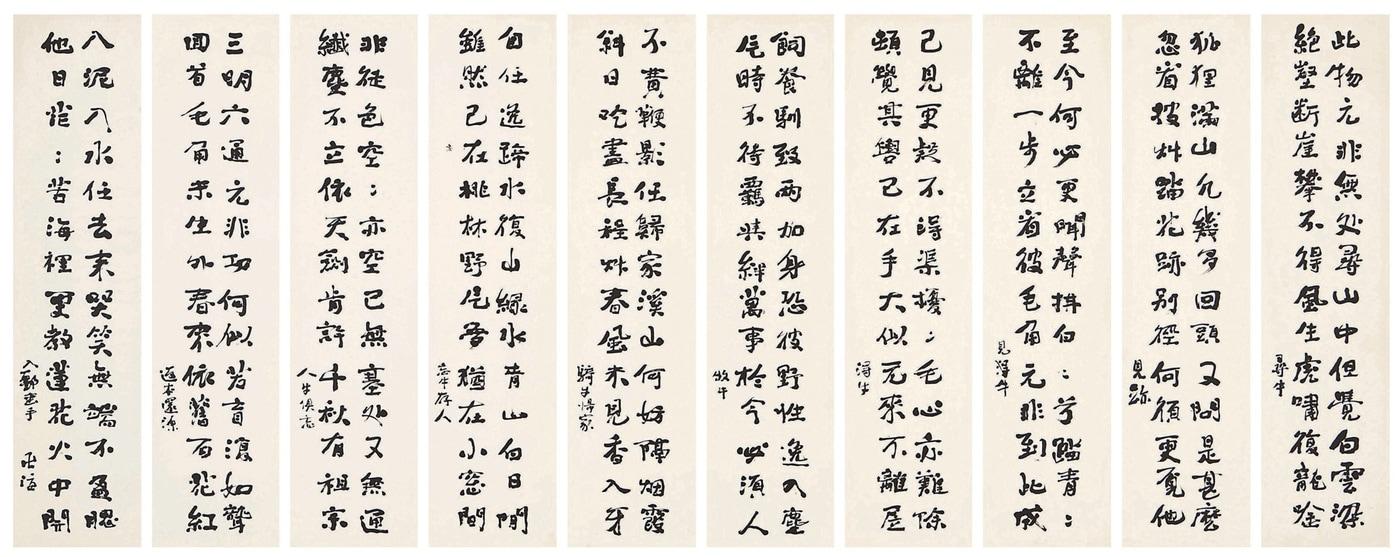 此物元非無处尋山中但覺白雲深
絕壑断崖攀不得風生虎嘯復龍唫
尋牛
狐狸滿山凡幾多回頭又問是甚麼
忽省披艸踏花跡別徑何須更覓他
見跡
至今何必更聞聲白〻兮蹋青〻
不離一步立省彼毛角元非到此成
見得牛
已見更疑不得渠擾〻毛心亦難除
頓覺其轡已在手大似元來不離屋
得牛
飼養馴致兩加身恐彼野性逸入塵
片時不待羈其絆萬事於今必須人
牧牛
不費鞭影任歸家溪山何妨隔烟霞
斜日吃盡長程艸春風未見香入牙
騎牛歸家
自任逸蹄水復山綠水青山白日閒
雖然已在桃林野片夢猶在小窓間
忘牛存人
非徒色空〻亦空已無塞处又無通
纖塵不立依天劍肯許千秋有祖宗
人牛俱忘
三明六通元非功何似若盲復如聾
回首毛角未生外春來依舊百花紅
返本還源
入泥入水任去來哭笑無端不盈腮
他日茫〻苦海裡更教蓮花火中開
入鄽垂手